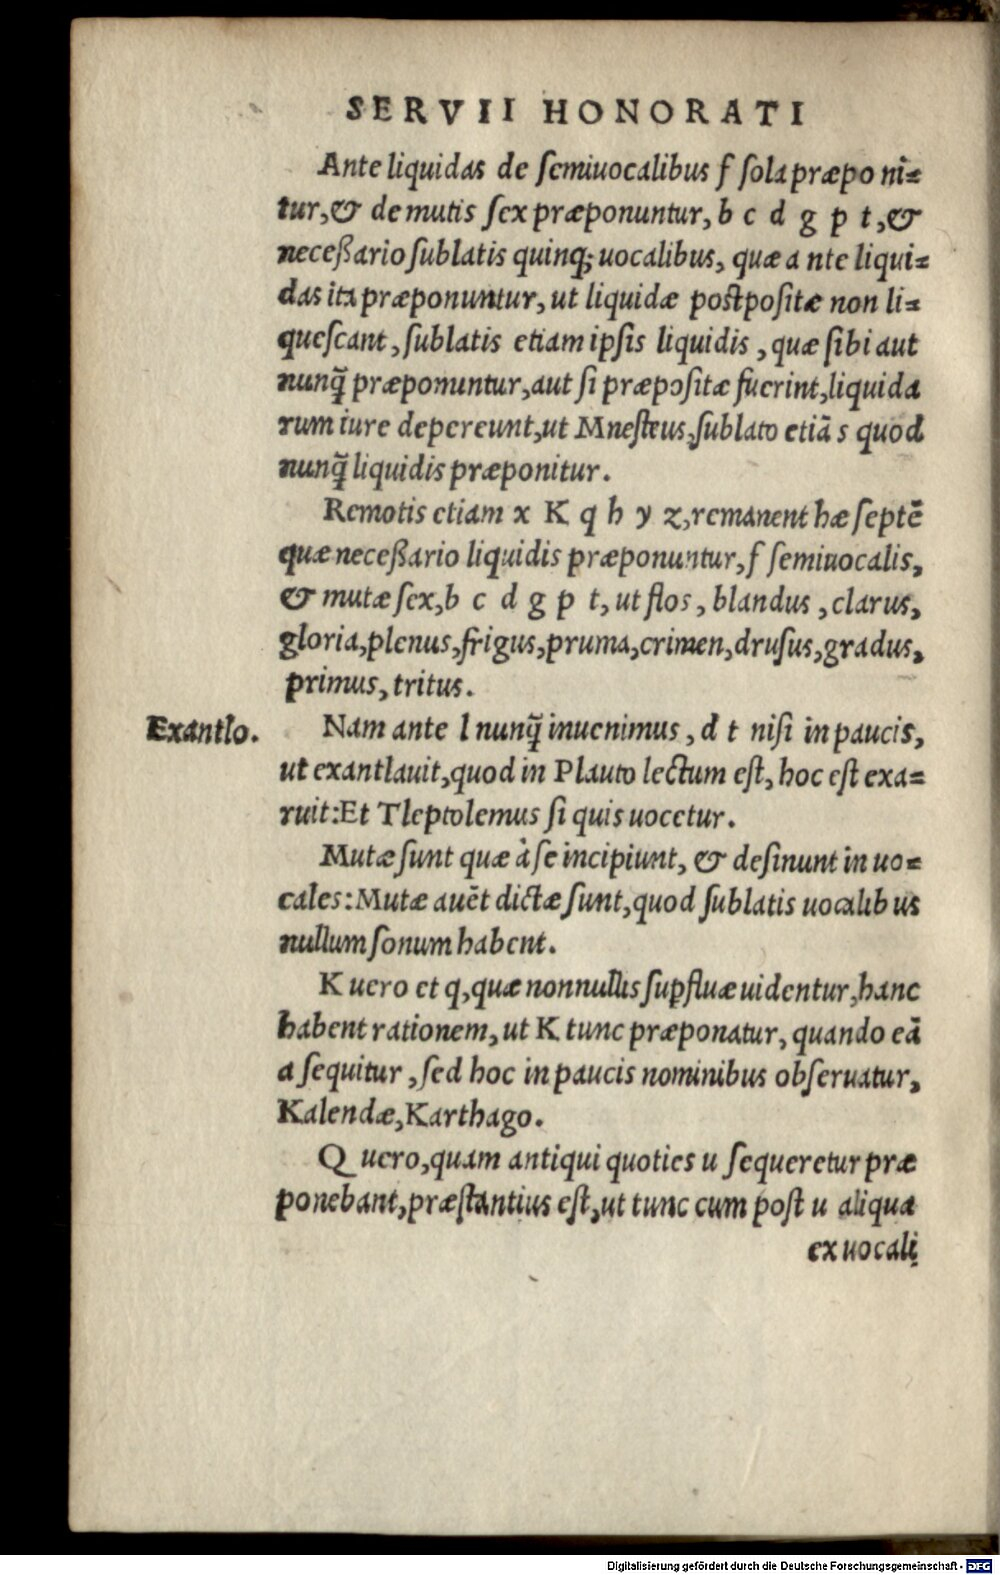 SERVII HONORATI
Ante liquidas de ſemiuocalibus f ſola præpo ni=
tur, & de mutis ſex præponuntur, b c d g p t, &
neceßario ſublatis quinq; uocalibus, quæ a nte liqui=
das ita præponuntur, ut liquidæ poſtpoſitæ non li=
queſcant, ſublatis etiam ipſis liquidis, quæ ſibi aut
nunq̃ præponuntur, aut ſi præpoſitæ fuerint, liquida
rum iure depereunt, ut Mneſteus, ſublato etiã s quod
nunq̃ liquidis præponitur.
Remotis etiam x K q h y z, remanent hæ ſeptẽ
quæ neceßario liquidis præponuntur, f ſemiuocalis,
& mutæ ſex, b c d g p t, ut flos, blandus, clarus,
gloria, plenus, frigus, pruma, crimen, druſus, gradus,
primus, tritus.
Exantlo.
Nam ante l nunq̃ inuenimus, d t niſi in paucis,
ut exantlauit, quod in Plauto lectum eſt, hoc eſt exa=
ruit: Et Tleptolemus ſi quis uocetur.
Mutæ ſunt quæ à ſe incipiunt, & deſinunt in uo=
cales: Mutæ auẽt dictæ ſunt, quod ſublatis uocalib us
nullum ſonum habent.
K uero et q, quæ nonnullis ſuꝑfluæ uidentur, hanc
habent rationem, ut K tunc præponatur, quando eã
a ſequitur, ſed hoc in paucis nominibus obſeruatur,
Kalendæ, Karthago.
Q uero, quam antiqui quoties u ſequeretur præ
ponebant, præſtantius eſt, ut tunc cum poſt u aliqua
ex uocali
Digitalisierung gefördert durch die Deutsche Forschungsgemeinschaft - DFG